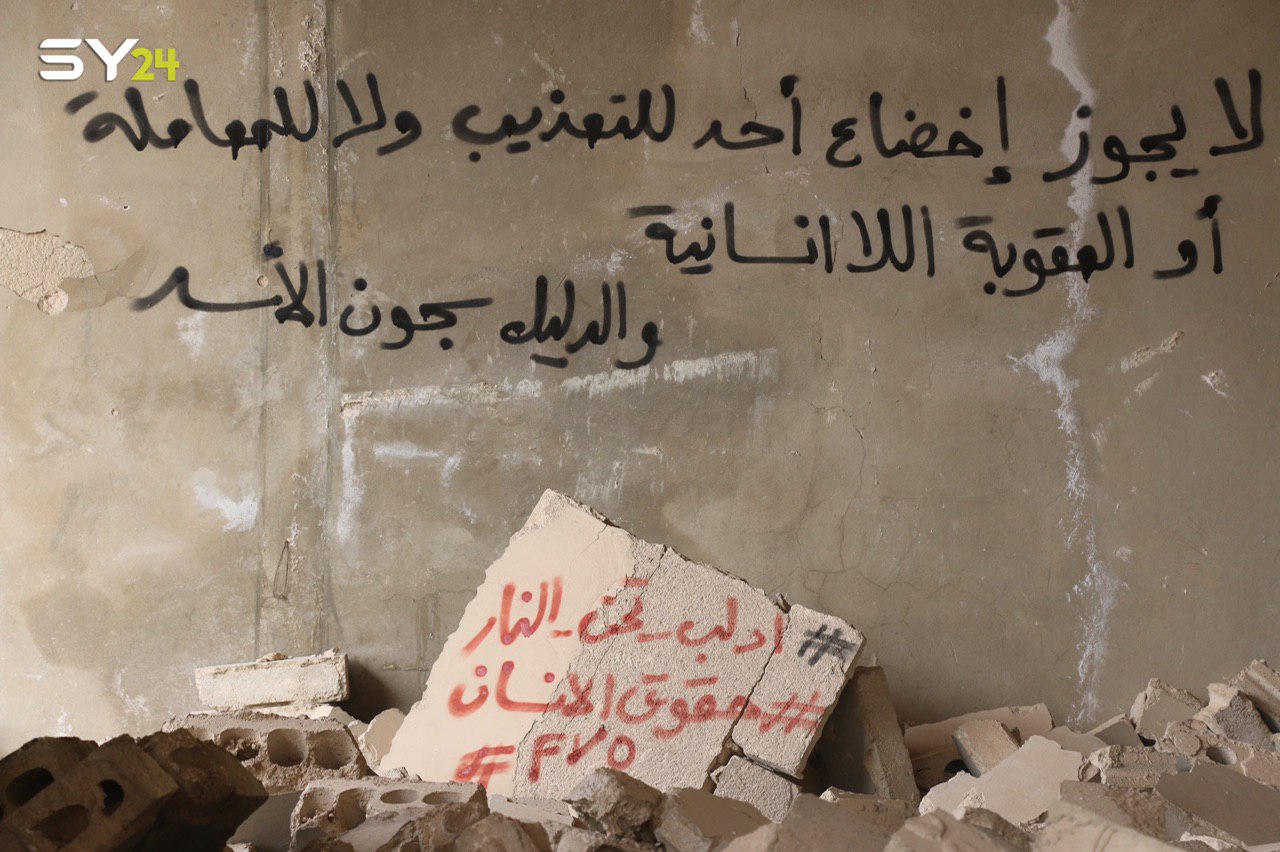 SY24
لا يجوز إخضاع أحد للتعذيب ولا للمعاملة
أو العقوبة اللاانسانية
والدليل سجون الأسد
#ادلب_تحت_النار
#حقوق الانسان
#FYO